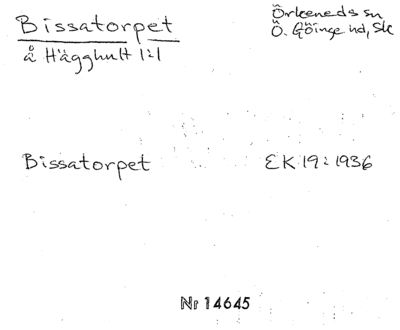 Bissatorpet
å Hägghult 1:1
Örkeneds sn
Ö. Göinge hd, Sk
Bissatorpet EK 19:1936
Nr 14645